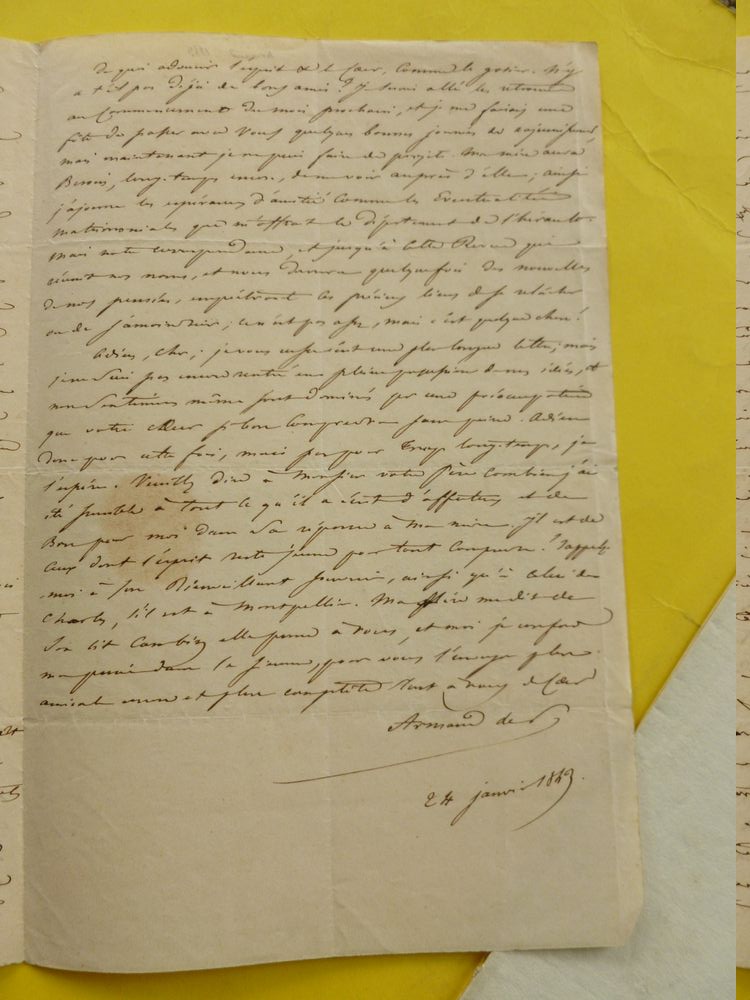 de quoi adoucir l'esprit et le cœur, comme le gosier. N'y
a t'il pas déjà de bons amis? J'aurai allé les retrouver
au commencement du mois prochain, et je me faisais une
fête de passer avec vous quelques bonnes journées
mais maintenant je ne puis faire de projets. Ma mère aura
besoin, long-temps encore, de me voir auprès d'elle; ainsi
j'ajourne les espérances d'amitié comme les éventualités
matrimoniales que m'offrait le département de l'hérault.
mais notre correspondance, et jusqu'à cette Revue qui
réunit nos noms, et nous donnera quelquefois des nouvelles
de nos pensées, empêcheront ces précieux liens de se relâcher
ou de s'amoindrir; ce n'est pas assez, mais c'est quelque chose!
Adieu, cher; je vous eusse écrit une plus longue lettre; mais
je ne suis pas encore rentré en pleine possession de mes idées, et
mes sentimens même sont dominés par une préoccupation
que votre cœur si bon comprendra sans peine. Adieu
donc pour cette fois, mais pas pour trop long-temps, je
l'espère. Veuillez dire à Monsieur votre père combien j'ai
été sensible à tout ce qu'il a écrit d'affectueux et de
Bon pour moi dans sa réponse à ma mère. Il est de
ceux dont l'esprit reste jeune pour tout comprendre! Rappelez-
moi à son Bienveillant souvenir, ainsi qu'à celui de
Charles, s'il est à Montpellier. Ma mère me dit de
son lit combien elle pense à vous, et moi je confonds
ma pensée dans la sienne, pour vous l'envoyer plus
amicale encore et plus complète. Tout à vous de cœur
Armand de P
24 janvier 1843.